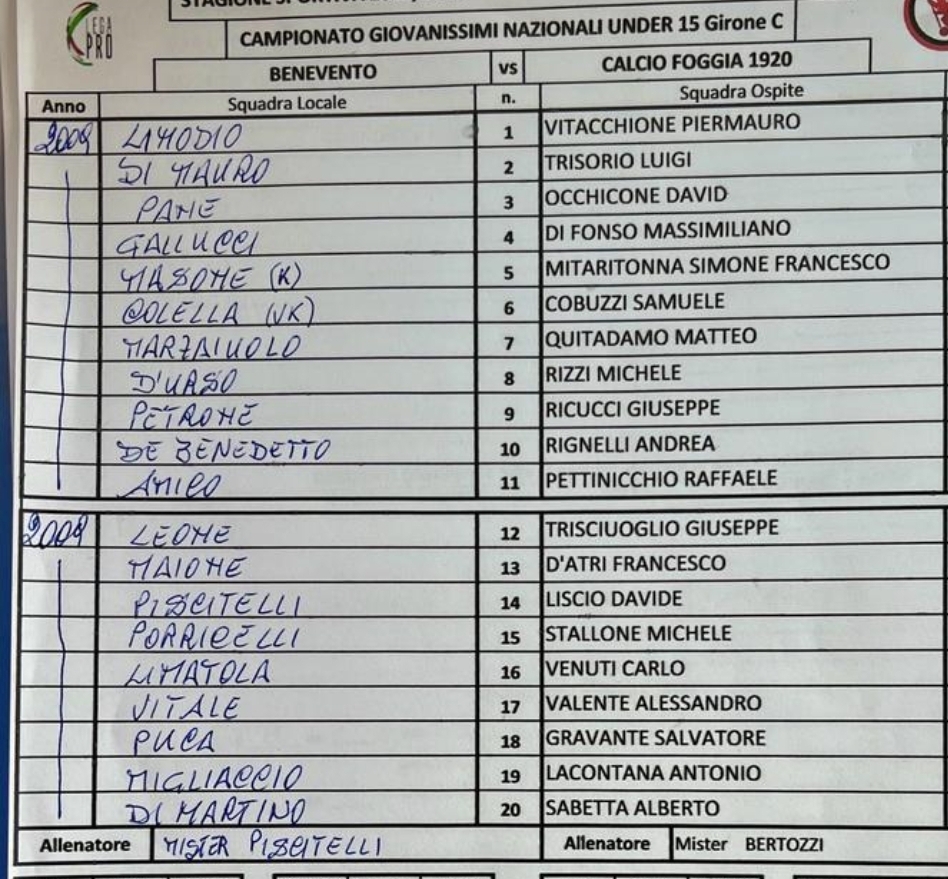 LEGA
PRO
CAMPIONATO GIOVANISSIMI NAZIONALI UNDER 15 Girone C
BENEVENTO vs CALCIO FOGGIA 1920
Anno Squadra Locale n. Squadra Ospite
2009 LIMODIO 1 VITACCHIONE PIERMAURO
DI MAURO 2 TRISORIO LUIGI
PANE 3 OCCHICONE DAVID
GALLUCCI 4 DI FONSO MASSIMILIANO
MASONE (K) 5 MITARITONNA SIMONE FRANCESCO
COLELLA (VK) 6 COBUZZI SAMUELE
MARZAIUOLO 7 QUITADAMO MATTEO
D'URSO 8 RIZZI MICHELE
PETRONE 9 RICUCCI GIUSEPPE
DE BENEDETTO 10 RIGNELLI ANDREA
AMICO 11 PETTINICCHIO RAFFAELE
2009 LEONE 12 TRISCIUOGLIO GIUSEPPE
MAIONE 13 D'ATRI FRANCESCO
PISCITELLI 14 LISCIO DAVIDE
PORRICELLI 15 STALLONE MICHELE
LIMATOLA 16 VENUTI CARLO
VITALE 17 VALENTE ALESSANDRO
PUCA 18 GRAVANTE SALVATORE
MIGLIACCIO 19 LACONTANA ANTONIO
DI MARTINO 20 SABETTA ALBERTO
Allenatore MISTER PISCITELLI Allenatore Mister BERTOZZI